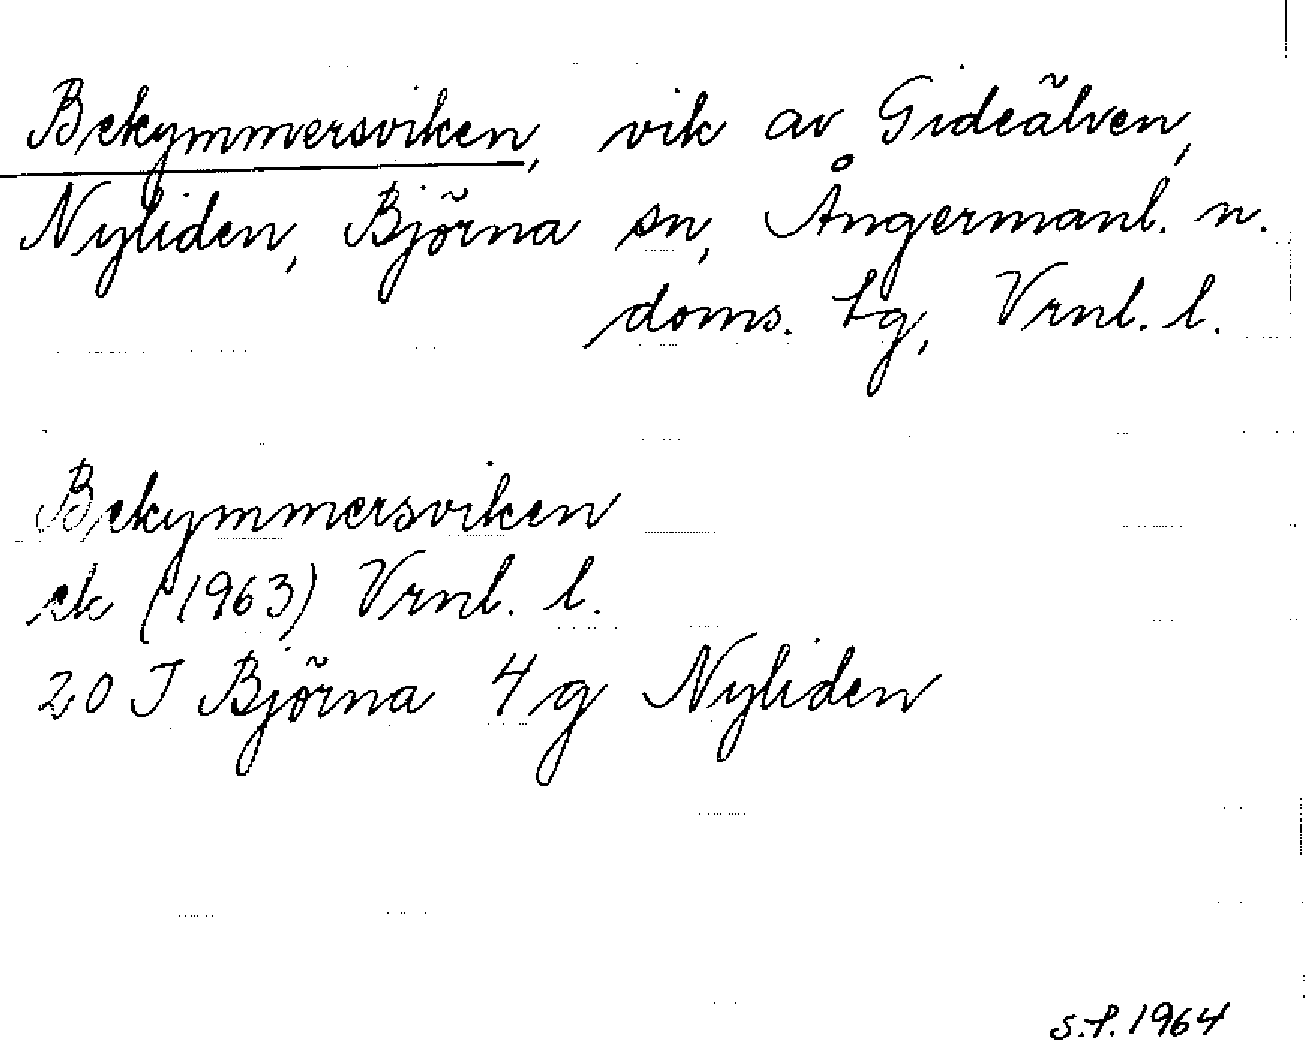 Bekymmersviken, vik av Gideälven,
Nyliden, Björna sn, Ångermanl. n.
doms. tg, Vrnl. l.
Bekymmersviken
ek (1963) Vrnl. l.
20 J Björna 4 g Nyliden
1964